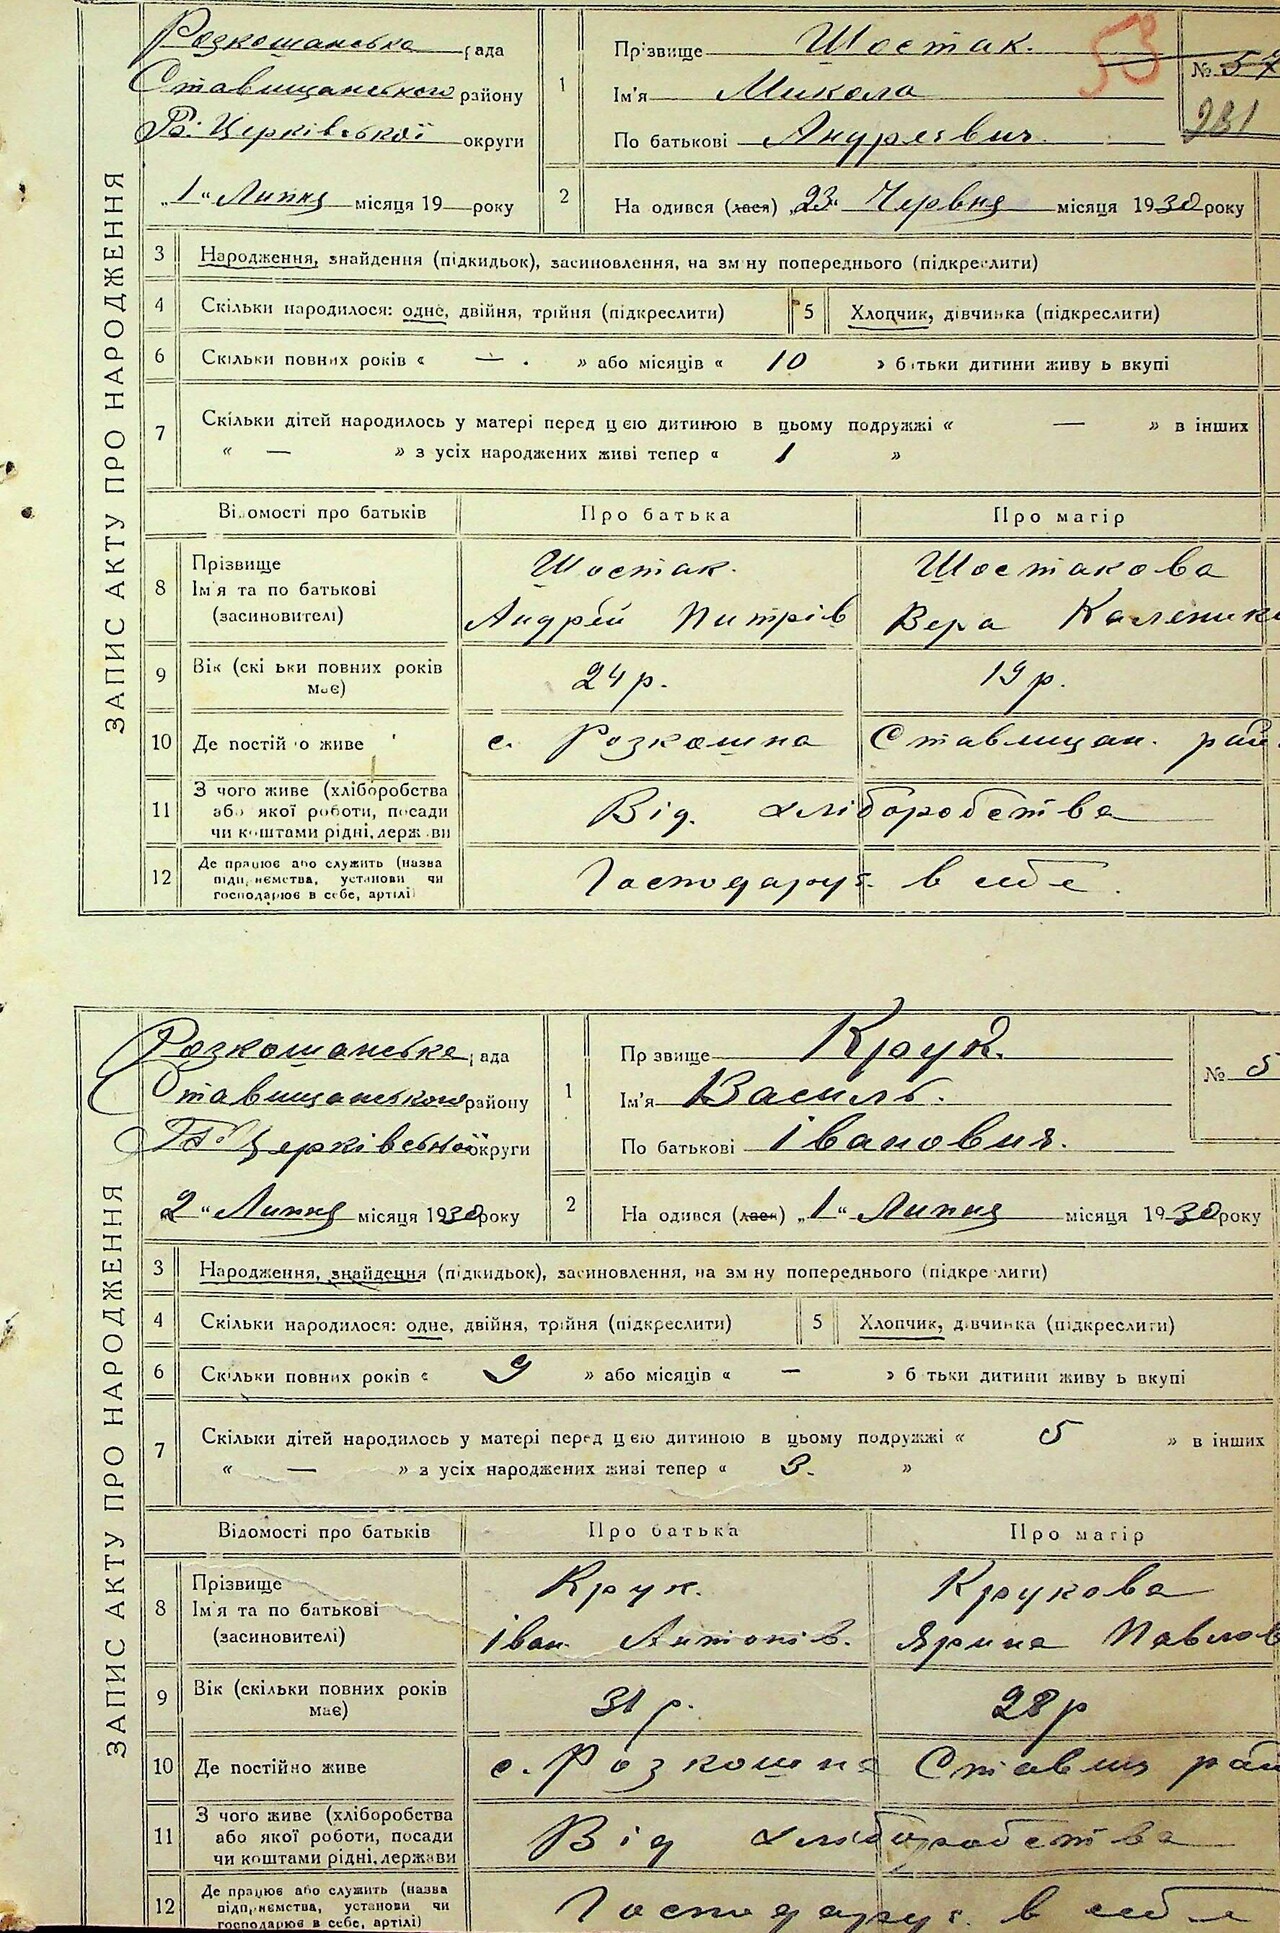 ЗАПИС АКТУ ПРО НАРОДЖЕННЯ
Розкошанська рада
Ставищанського району
Б. Церківської округи
„1“ Липня місяця 19 — року
1
Прізвище Шостак.
Ім'я Микола
По батькові Андрієвич.
53
№ 57
231
2
На одився (лася) „23“ Червня місяця 1930 року
3 Народження, знайдення (підкидьок), засиновлення, на зм ну попереднього (підкреслити)
4 Скільки народилося: одне, двійня, трійня (підкреслити) 5 Хлопчик, дівчинка (підкреслити)
6 Скільки повних років « — . » або місяців « 10 » батьки дитини живу ь вкупі
7 Скільки дітей народилось у матері перед цією дитиною в цьому подружжі « — » в інших
« — » з усіх народжених живі тепер « 1 »
Відомості про батьків Про батька Про матір
8 Прізвище Шостак. Шостакова
Ім'я та по батькові Андрій Питрів Вера
(засиновителі)
9 Вік (скі ьки повних років має) 24 р. 19 р.
10 Де постій о живе с. Розкошна Ставищан. рай.
11 З чого живе (хліборобства
або якої роботи, посади Від хліборобства
чи коштами рідні, держ ви
12 Де працює або служить (назва
підпр иємства, установи чи Господарує в себе.
господарює в себе, артілі)
ЗАПИС АКТУ ПРО НАРОДЖЕННЯ
Розкошанська рада
Ставищанського району
Б. Церківської округи
„2“ Липня місяця 1930 року
1
Пр звище Крук.
Ім'я Василь.
По батькові Іванович.
№ 5
2
На одився (лася) „1“ Липня місяця 1930 року
3 Народження, знайдення (підкидьок), засиновлення, на зм ну попереднього (підкре лити)
4 Скільки народилося: одне, двійня, трійня (підкреслити) 5 Хлопчик, дівчинка (підкреслити)
6 Скільки повних років « 9 » або місяців « — » б тьки дитини живу ь вкупі
7 Скільки дітей народилось у матері перед цією дитиною в цьому подружжі « 5 » в інших
« — » з усіх народжених живі тепер « 3. »
Відомості про батьків Про батька Про матір
8 Прізвище Крук. Крукова
Ім'я та по батькові Іван Антонів. Ярина Павлов
(засиновителі)
9 Вік (скільки повних років має) 31 р. 28 р
10 Де постійно живе с. Розкошна Ставищ рай
11 З чого живе (хліборобства
або якої роботи, посади Від хліборобства
чи коштами рідні, держави
12 Де працює або служить (назва
підпр иємства, установи чи Господарує. в себе
господарює в себе, артілі)